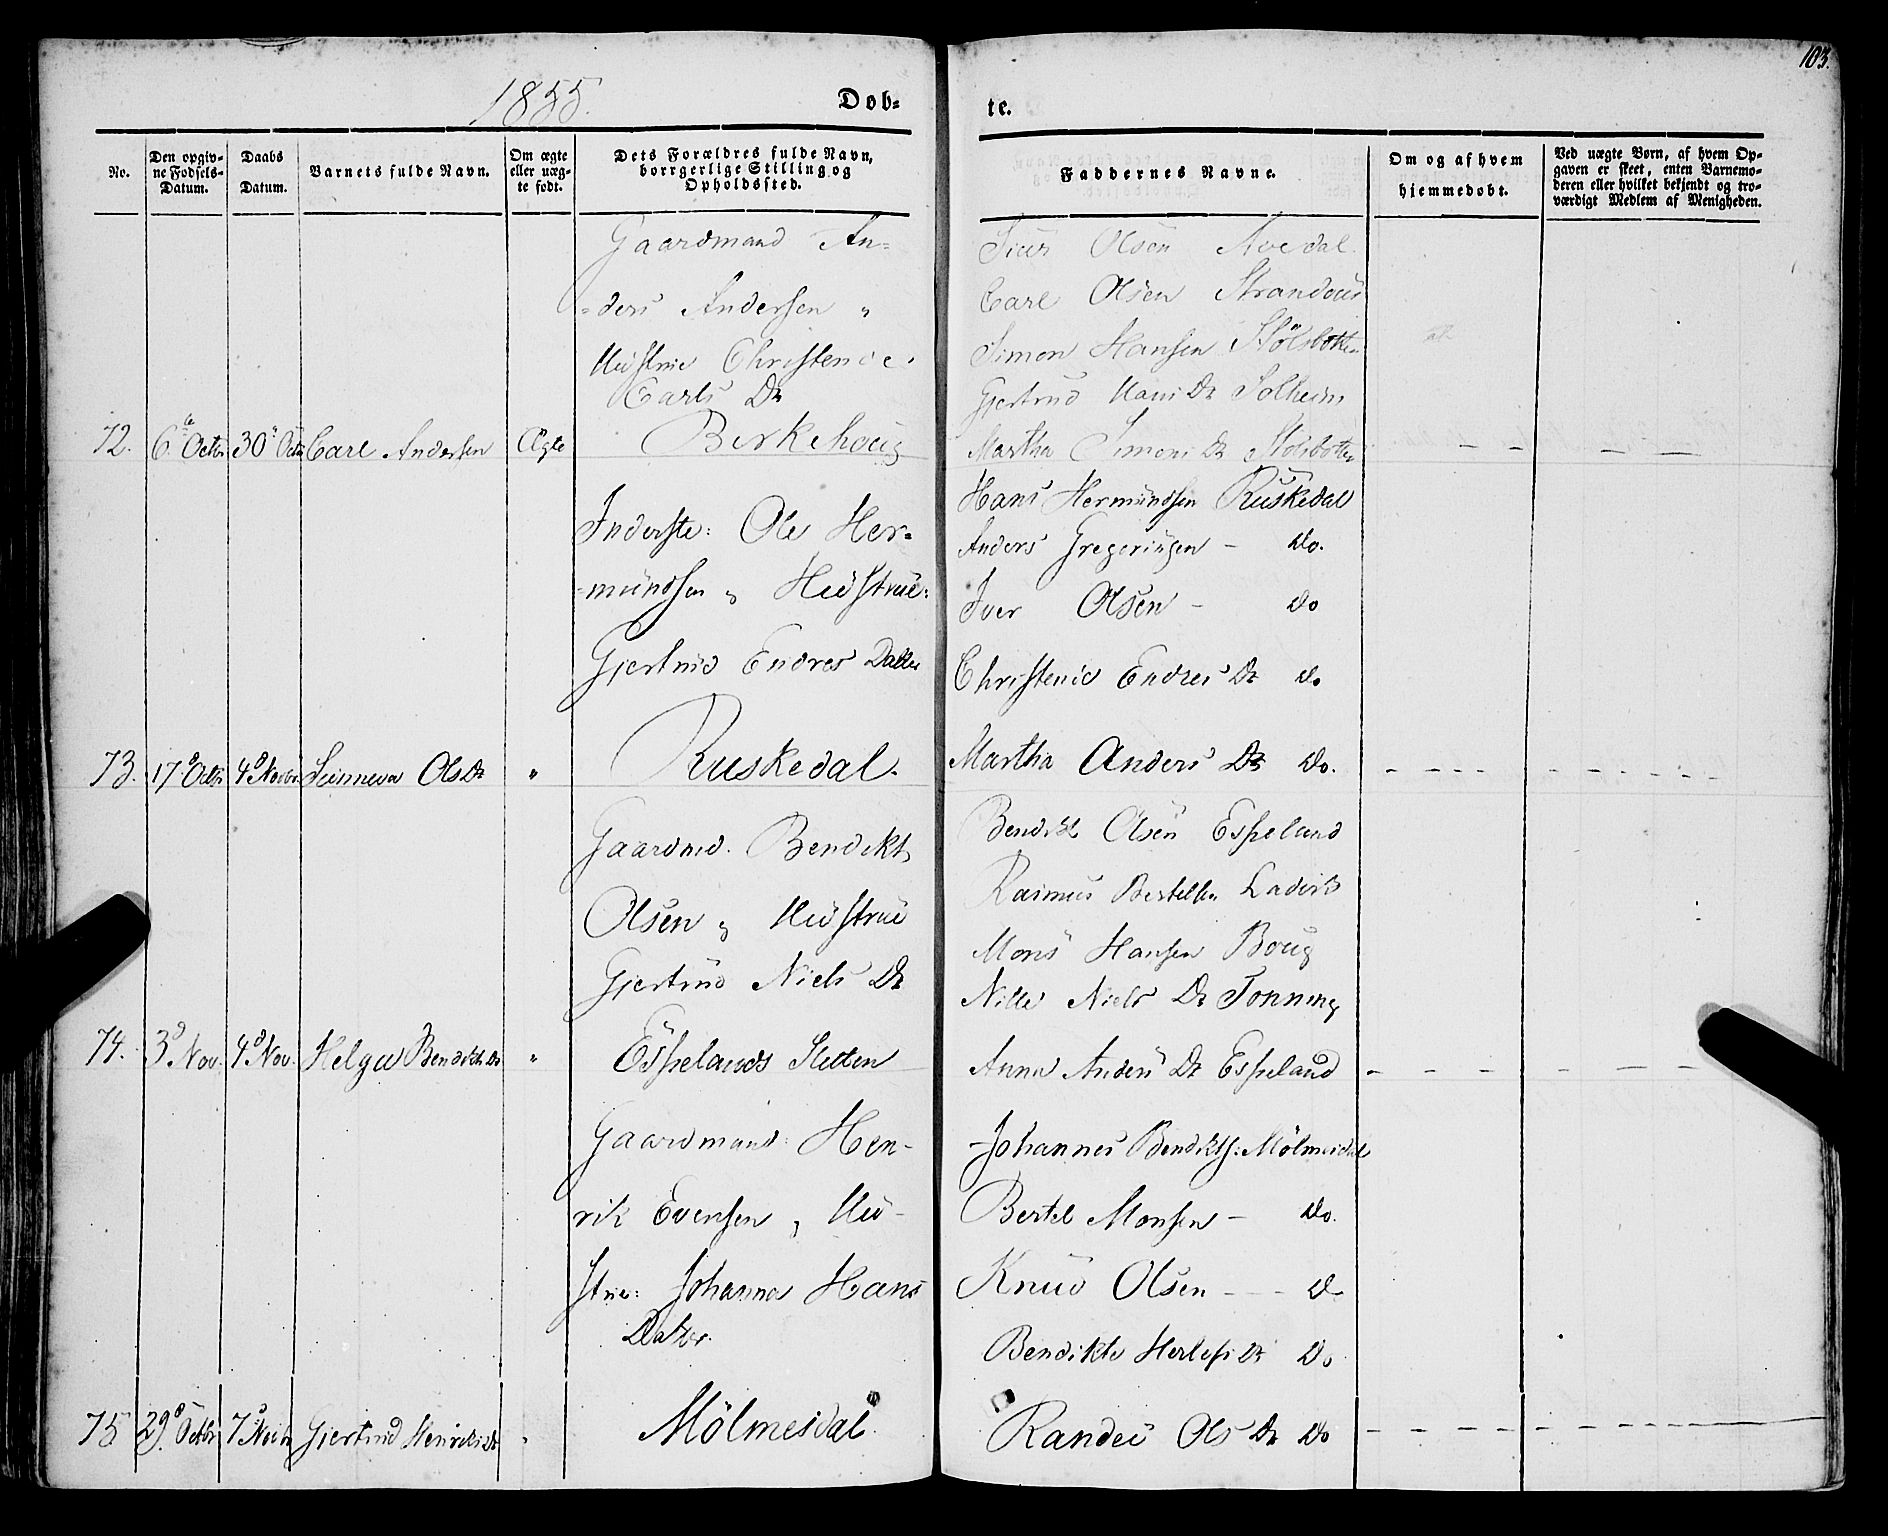 103.
1855.
Døb-
te.
No.
Den opgiv-
ne Fødsels-
Datum.
Daabs
Datum.
Barnets fulde Navn.
Om ægte
eller uæg-
te født.
Dets Forældres fulde Navn,
borrgerlige Stilling og
Opholdssted.
Faddernes Navne.
Om og af hvem
hjemmedøbt.
Ved uægte Børn, af hvem Op-
gaven er skeet, enten Barnemo-
deren eller hvilket bekjendt og tro-
værdigt Medlem af Menigheden.
72. 6te Octbr 30te Octb Carl Andersen Ægte
Gaardmand An-
-ders Andersen "
Hustrue Christence
Carls Dr
Birkehoug
Siur Olsen
Carl Olsen Strandous
Simon Hansen Stølsbotten
Gjertrud Hans Dr Solheim
Martha Simons Dr Stølsbotten
73. 17d Octbr 4d Novbr Sunneva Ols Dr "
Inderste: Ole Her-
-mundsen og Hustrue:
Gjertrud Endres Datter
Ruskedal.
Hans Hermundsen Ruskedal
Anders Gregeriusen - Do.
Iver Olsen - Do
Christence Endres Dr do
Martha Anders Dr Do.
74. 3d Nov. 4d Nov. Helga Bendikts Dr "
Gaardmd. Bendikt
Olsen og Hustrue
Gjertrud Niels Dr
Espelands Sletten
Bendikt Olsen Espeland
Rasmus Bertelsen Ladvik
Mons Hansen Boug
Nille Niels Dr Tonning
Anna Anders Dr Espeland
75 29d Octbr 7d Novbr Gjertrud Henriks Dr "
Gaardmand Hen-
rik Evensen og Hu-
strue: Johanna Hans
Datter.
Mölmesdal.
Johannes Bendikts: Mölmesdal
Bertel Monsen - Do.
Knud Olsen - - - D
Bendikte Herlefs Dr Do
Randei Ols Dr Do